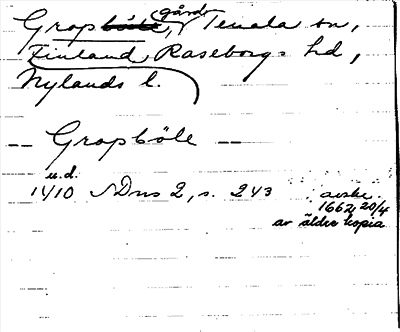 Gropböle, gård, Tenala sn,
Finland, Raseborgs hd,
Nylands l.
Gropböle
u.d.
1410 SDns 2, s. 243 avskr.
1662 20/4
av äldre kopia